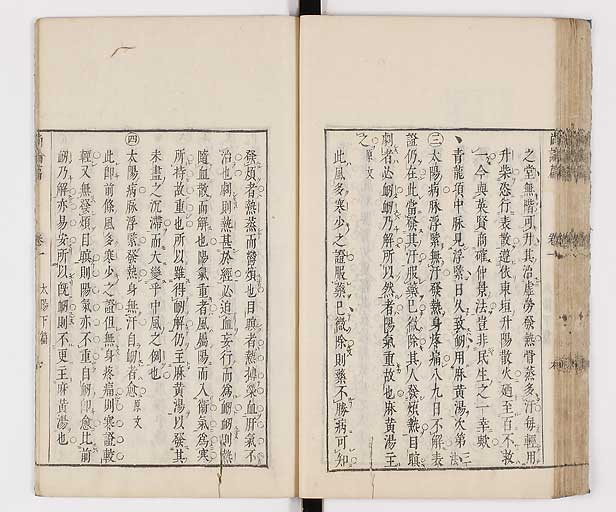 之堂無階可升其治虛勞發熱骨蒸多汗每輕用
升柴恣行表散遵依東垣升陽散火迺至百不救
一今與英賢商確仲景法豈非民生之一幸歟
青龍項中脉見浮緊日久致衂用麻黄湯次第三法
三太陽病脉浮緊無汗發熱身疼痛八九日不解表
證仍在此當發其汗服藥已微除其人發煩熱目瞑
劇者必衂衂乃解所以然者陽氣重故也麻黄湯主
之原文
此風多寒少之證服藥已微除則藥不勝病可知
發煩者熱蒸而鬱煩也目瞑者熱
血肝氣不
治也劇則熱甚於經必迫血妄行而為衂衂則熱
隨血散而解也陽氣重者風屬陽而入衛氣為寒
所持故重也所以雖得衂解仍主麻黄湯以發其
未盡之沉滯而大變乎中風之例也
四太陽病脉浮緊發熱身無汗自衂者愈原文
此即前條風多寒少之證但無身疼痛則寒證較
輕又無發煩目瞑則陽氣亦不重自衂即愈比前
衂乃解亦易安所以既衂則不更主麻黄湯也
尚論篇 卷一 太陽下篇